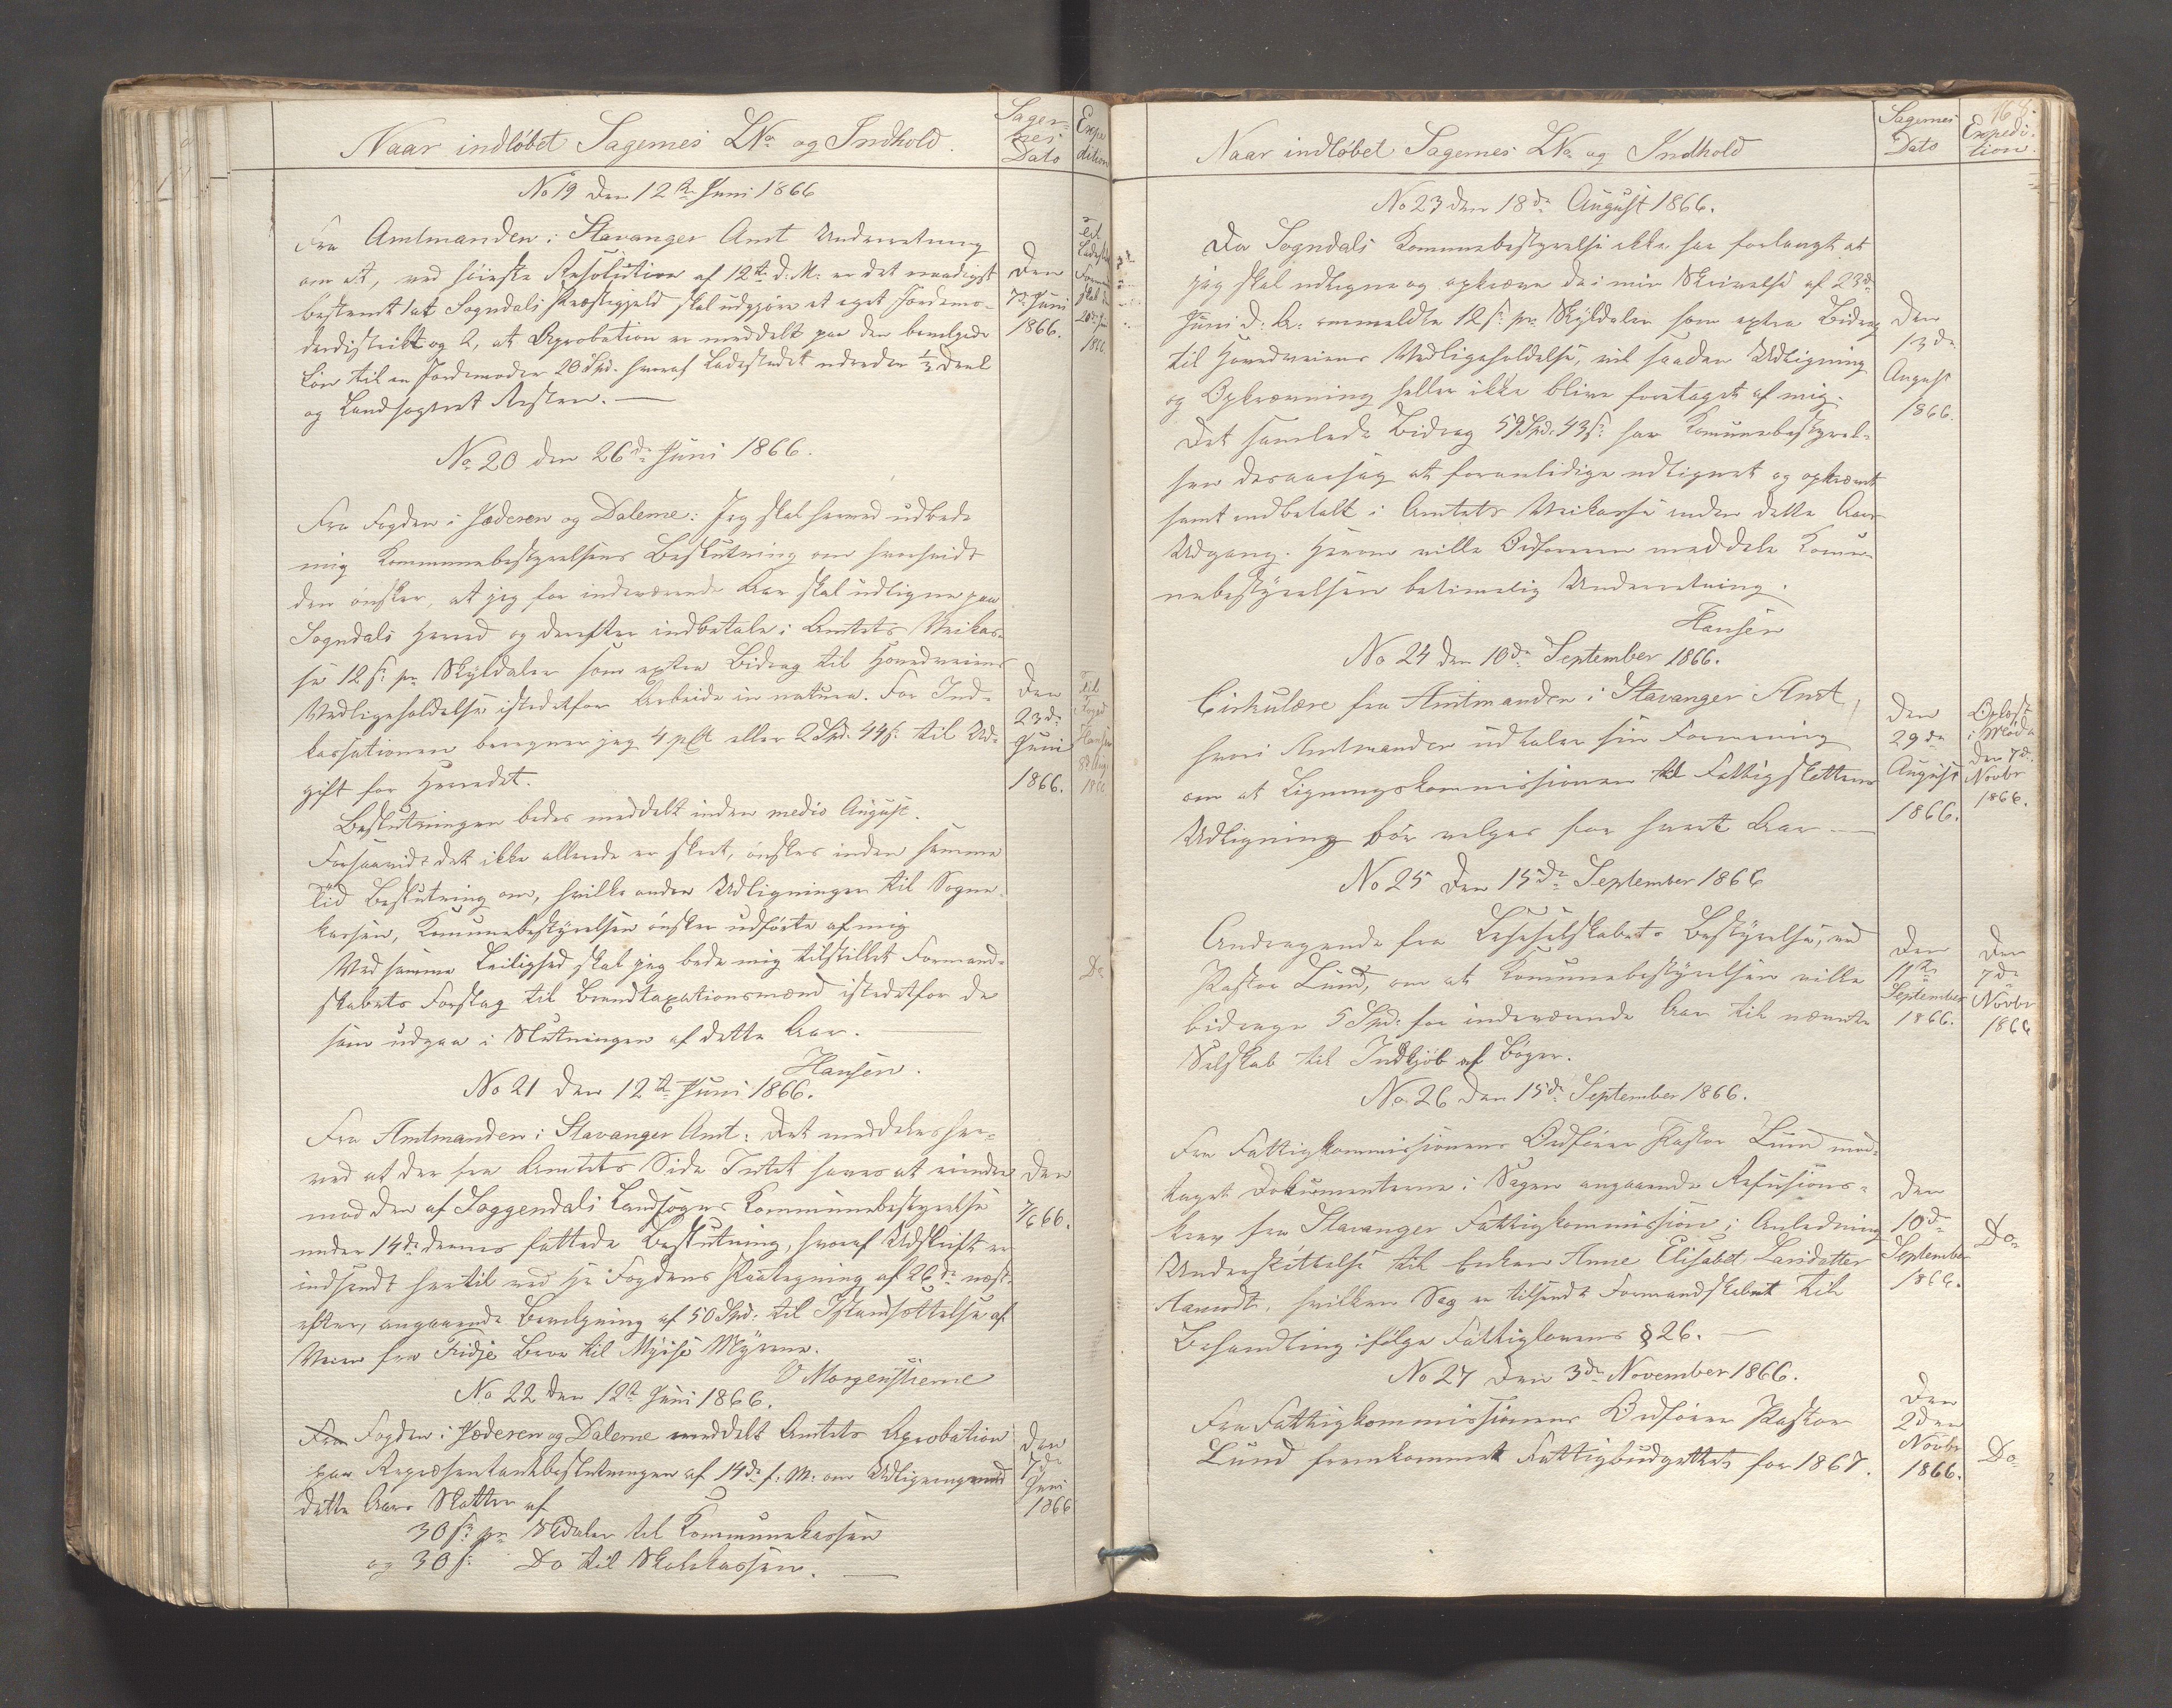 Naar indløbet Sagernes LNo og Indhold.
Sager-
nes
Dato
Expe
dition
No 19 den 12te Juni 1866
Fra Amtmanden i Stavanger Amt Underretning
om at, ved høieste Resolution af 12te d: M: er det naadigst
bestemt 1 at Sogndals Præstegjeld skal udgjøre et eget Jordemo-
derdistrikt og 2, at Aprobation er meddelt paa den bevilgede
Løn til en Jordemoder 20 Spd. hvoraf Ladestedet udreder 1/3 Deel
og Landsognet Resten. —
Den
7de Juni
1866.
Ladested
Formand
skab
20de Juni
1866
No 20 den 26de Juni 1866.
Fra Fogden i Jæderen og Dalerne: Jeg skal herved udbede
mig Kommunebestyrelsens Beslutning om hvorvidt
den ønsker, at jeg for indeværende Aar skal udligne paa
Sogndals Herred og derefter indbetale i Amtets Veikas-
se 12 ß pr Skyldaler som extra Bidrag til Hovedveiens
Vedligeholdelse istedetfor Arbeide in natura. For Ind-
kassationen beregner jeg 4 pCt eller 2 Spd. 44 ß. til Ud-
gift for Herredet.
Beslutningen bedes meddelt inden medio August.
Forsaavidt det ikke allerede er skeet, ønskes inden samme
Tid Beslutning om, hvilke andre Udligninger til Sogne-
kassen, Kommunebestyrelsen ønsker udførte af mig
Ved samme Leilighed skal jeg bede mig tilstillet Formand-
skabets Forslag til Brandtaxationsmænd istedetfor de
som udgaa i Slutningen af dette Aar. —
Hansen.
Den
23de
Juni
1866.
Til
Foged
Hansen
8de Aug.
1866
Do
No 21 den 12te Juni 1866.
Fra Amtmanden i Stavanger Amt: Det meddeles her-
ved at der fra Amtets Side Intet haves at erindre
mod den af Soggendals Landsogns Kommunebestyrelse
under 14de dennes fattede Beslutning, hvoraf Udskrift er
indsendt hertil ved Hr Fogdens Paategning af 26de næst-
efter, angaaende Bevilgning af 50 Spd. til Istandsættelse af
Veien fra Fidje Broe til Mysse Myrene.
V Morgenstierne
Den
7/6 66.
No 22 den 12te Juni 1866.
Fra Fogden i Jæderen og Dalerne meddelt Amtets Aprobation
paa Repræsentantbeslutningen af 14de f: M: om Udligning med
dette Aars Skatter af
30 ß pr Skdaler til Kommunekassen
og 30 ß. Do til Skolekassen. —
Den
7de
Juni
1866
Naar indløbet Sagernes LNo og Indhold
Sagernes
Dato
168.
Expedi-
tion.
No 23 den 18de August 1866.
Da Sogndals Kommunebestyrelse ikke har forlangt at
jeg skal udligne og opkræve de i min Skrivelse af 23de
Juni d: A: ommeldte 12 ß. pr Skyldaler som extra Bidrag
til Hovedveiens Vedligeholdelse, vil saadan Udligning
og Opkrævning heller ikke blive foretaget af mig.
Det samlede Bidrag 59 Spd. 43 ß. har Komunebestyrel-
sen desaarsag at foranledige udlignet og opkrævet
samt indbetalt i Amtets Veikasse inden dette Aars
Udgang. Herom ville Ordføreren meddele Komu-
nebestyrelsen betimelig Underretning.
Hansen
Den
13de
August
1866.
No 24 den 10de September 1866.
Cirkulære fra Amtmanden i Stavanger Amt,
hvori Amtmanden udtaler sin Formening
om at Ligningskommissionen til Fattigskattens
Udligning bør velges for hvert Aar —
Den
29de
August
1866.
Oplæst
i Møde
den 7de
Novbr
1866.
No 25 den 15de September 1866
Andragende fra Læseselskabets Bestyrelse, ved
Pastor Lund, om at Komunebestyrelsen ville
bidrage 5 Spd: for indeværende Aar til nævnte
Selskab til Indkjøb af Bøger.
Den
11te
September
1866.
Den
7de
Novbr
1866
No. 26 den 15de September 1866.
Fra Fattigkommissionens Ordfører Pastor Lund mod-
taget Dokumenterne i Sagen angaaende Refusions-
krav fra Stavanger Fattigkommission i Anledning
Understøttelse til Enken Anne Elisabet Larsdatter
Aamodt, hvilken Sag er tilsendt Formandskabet til
Behandling ifølge Fattiglovens § 26. —
Den
10de
September
1866.
Do
No 27 Den 3de November 1866.
Fra Fattigkommissionens Ordfører Pastor
Lund fremkommet Fattigbudgettet for 1867.
Den
2den
Novbr
1866.
Do